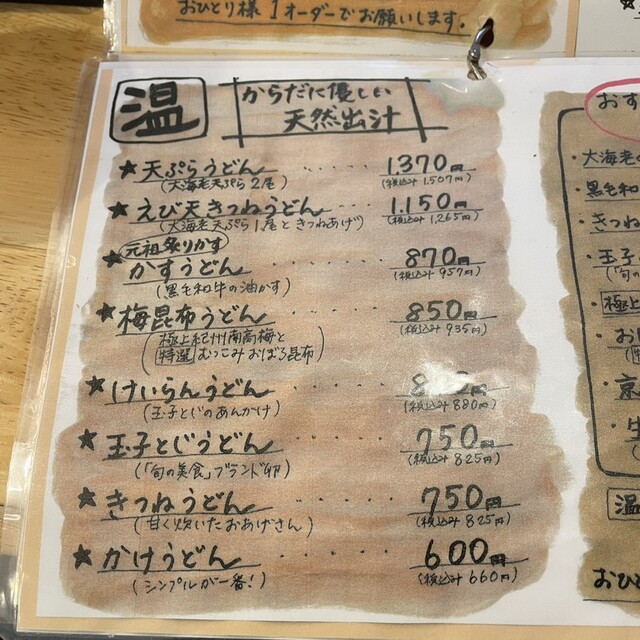 おひとり様 1オーダーでお願いします。
温
からだに優しい
天然出汁
★天ぷらうどん ····· 1,370円
(大海老天ぷら2尾) (税込み 1,507円)
★えび天きつねうどん 1,150円
(大海老天ぷら1尾ときつねあげ) (税込み 1,265円)
元祖炙りかす
★かすうどん ····· 870円
(黒毛和牛の油かす) (税込み 957円)
★梅昆布うどん ····· 850円
(極上紀州南高梅と (税込み 935円)
特選 むっこみおぼろ昆布)
★けいらんうどん ·····
(玉子とじのあんかけ) (税込み 880円)
★玉子とじうどん ····· 750円
(「旬の美食」ブランド卵) (税込み 825円)
★きつねうどん ····· 750円
(甘く炊いたおあげさん) (税込み 825円)
★かけうどん ····· 600円
(シンプルが一番!) (税込み 660円)
おす
・大海老の
・黒毛和
・きつね
・玉子と
(旬の
・極上
・おぼ
・京
・生
温
おひと